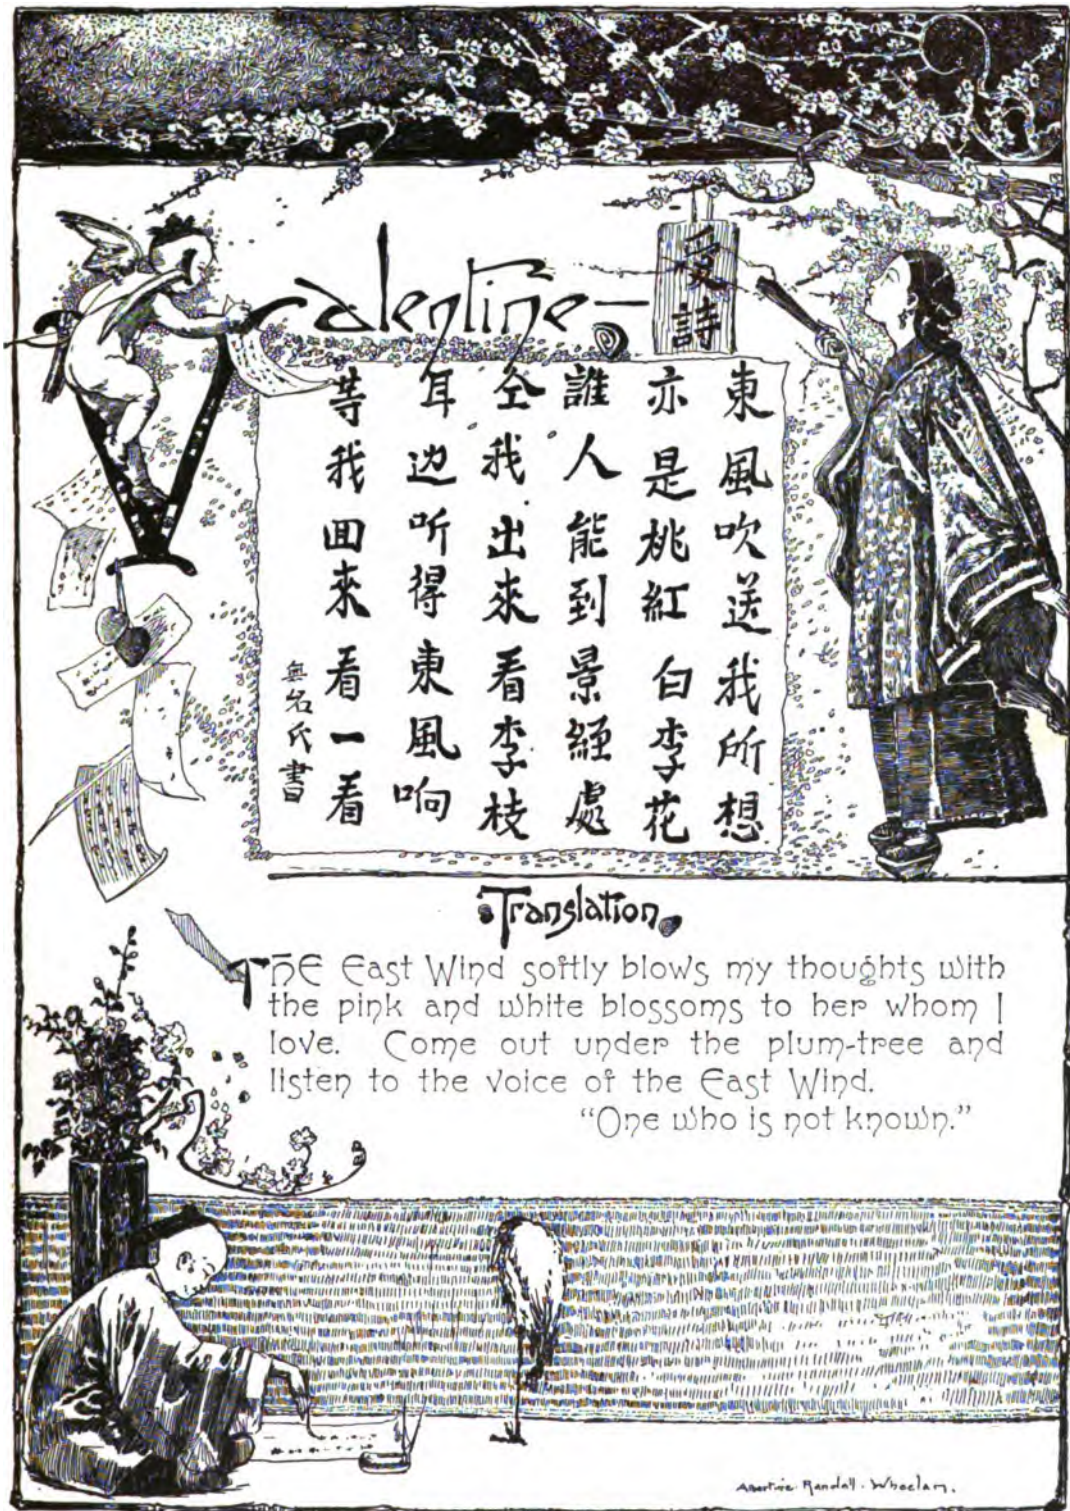 Valentine
愛詩
東風吹送我所想
亦是桃紅白李花
誰人能到景經處
仝我出來看李枝
耳边听得東風响
等我回來看一看
無名氏書
Translation
THE East Wind softly blows my thoughts with
the pink and white blossoms to her whom I
love. Come out under the plum-tree and
listen to the voice of the East Wind.
“One who is not known.”
Albertine Randall Wheelan.